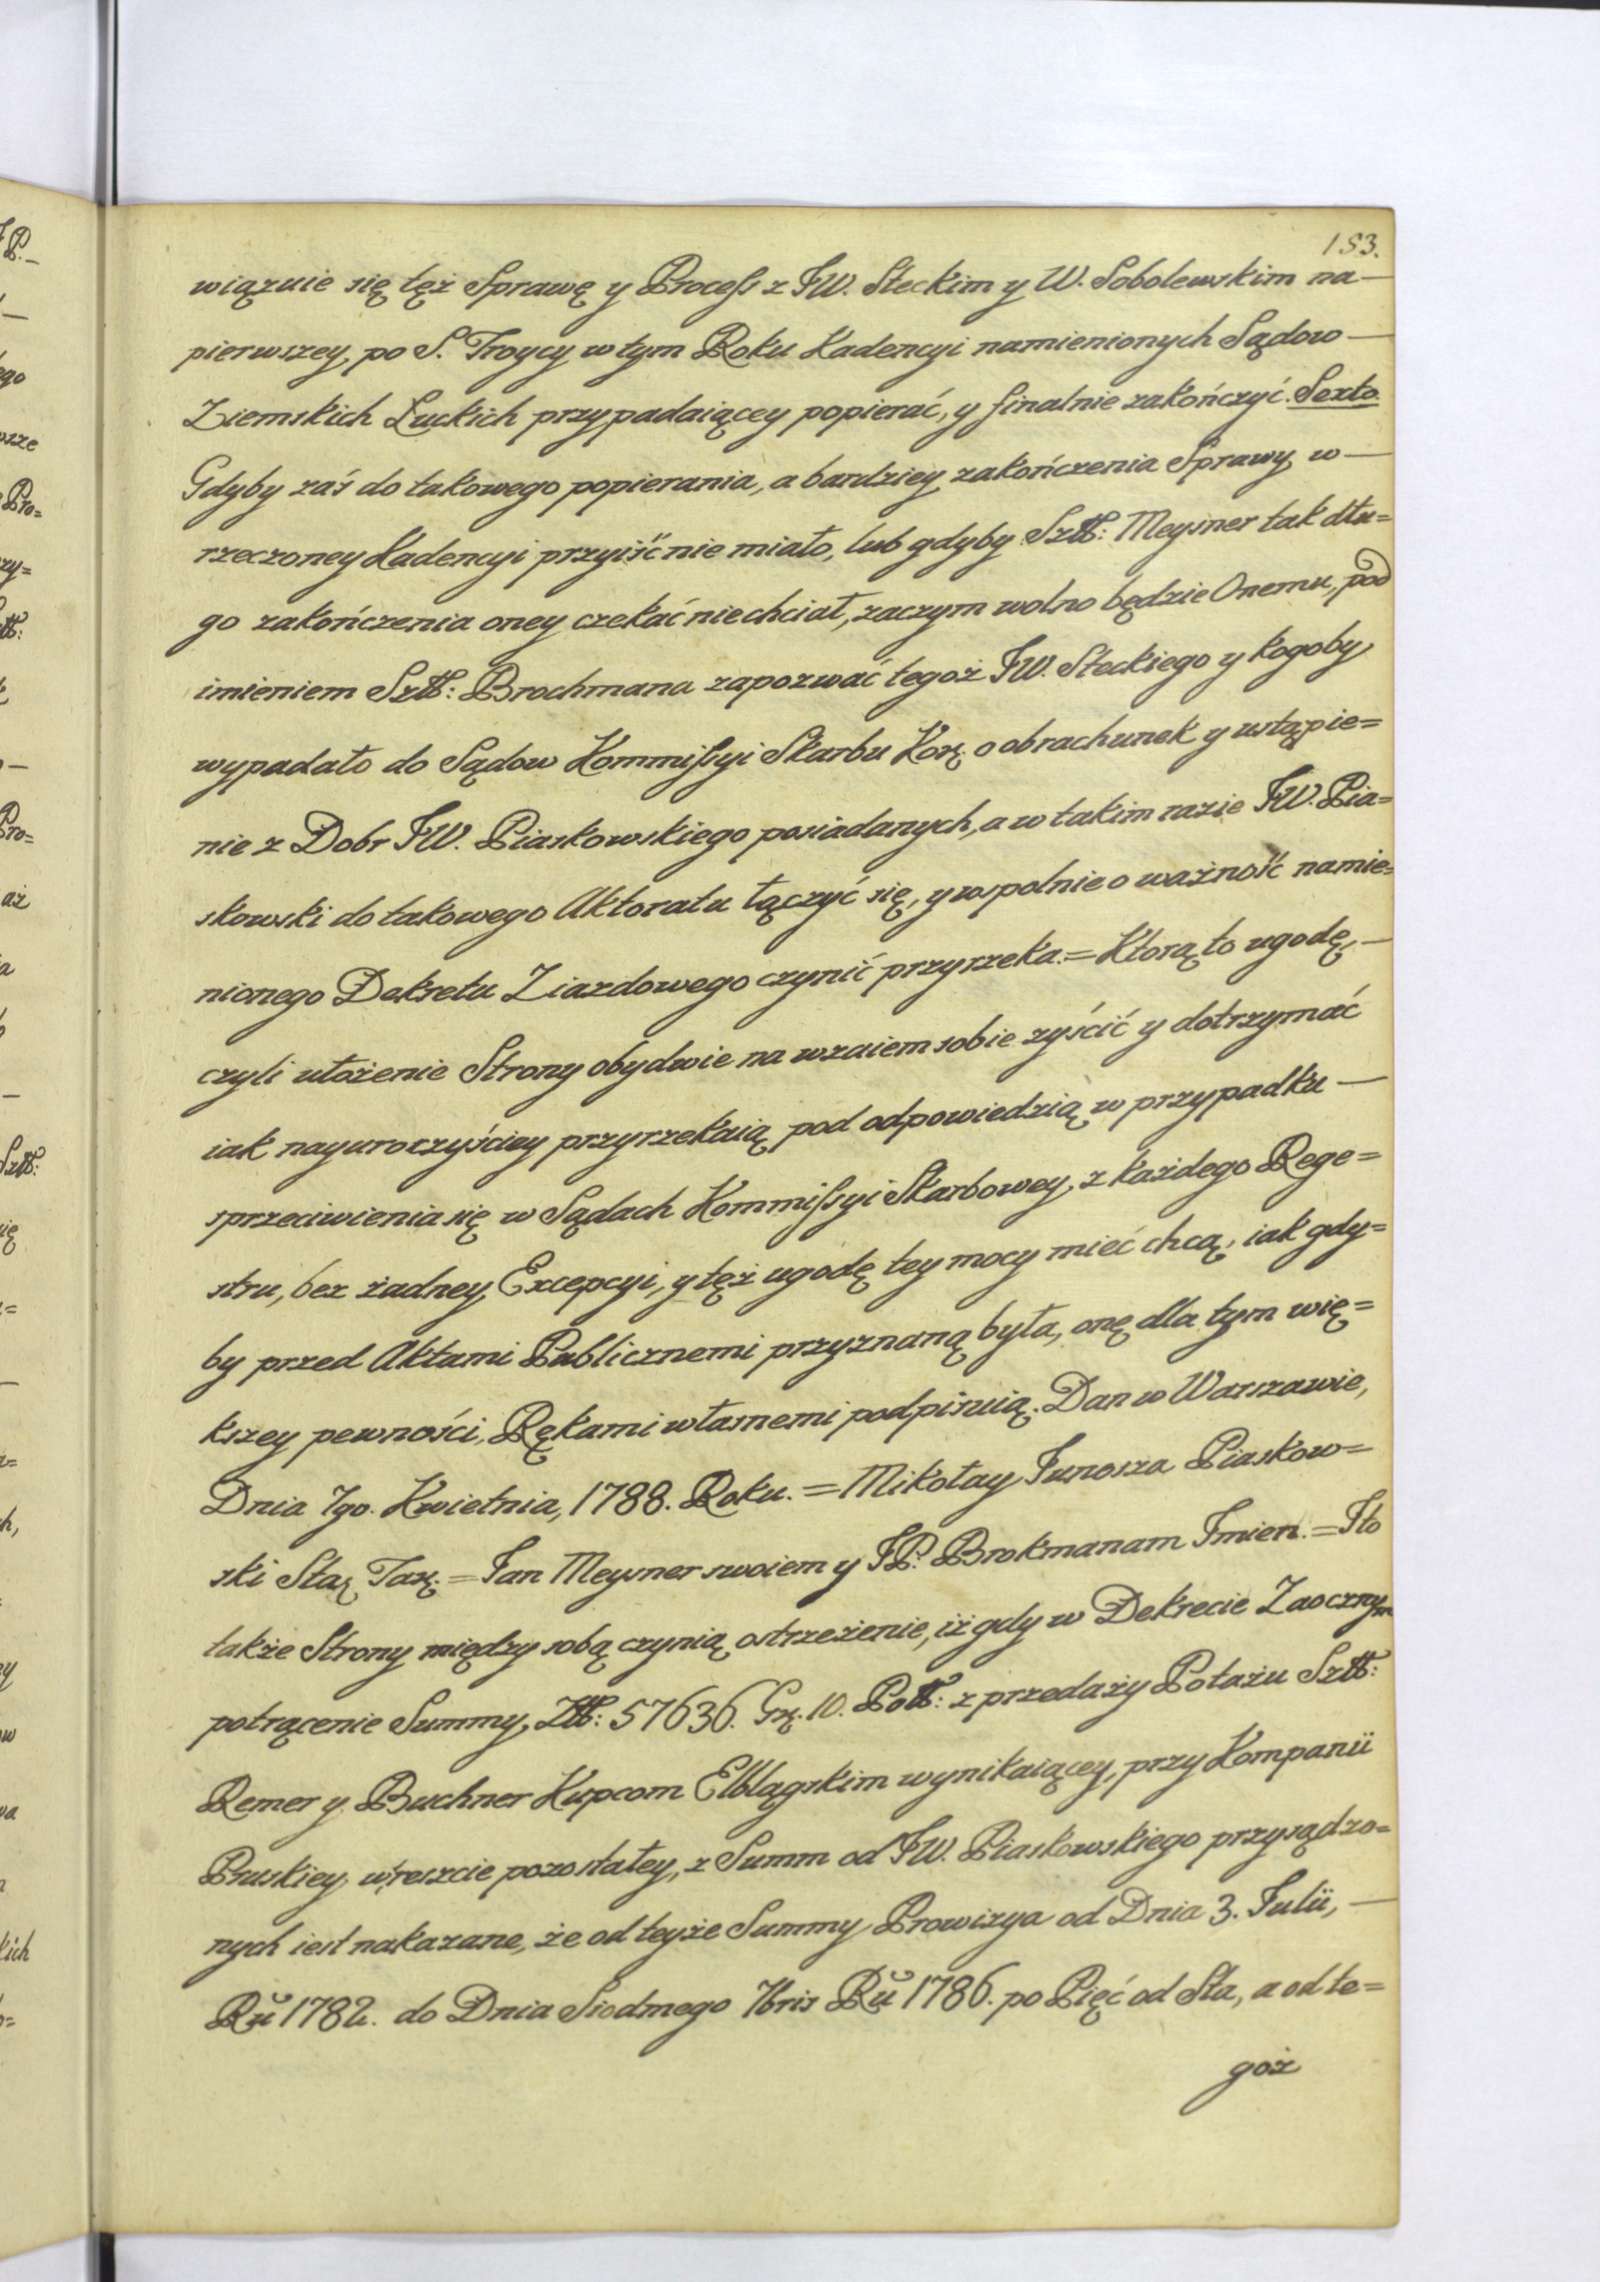 183.
wiązuie się też Sprawę y Process z JW. Steckim y W. Sobolewskim na —
pierwszey, po S. Troycy w tym Roku Kadencyi namienionych Sądow —
Ziemskich Łuckich przypadaiącey popierać, y finalnie zakończyć. Sexto.
Gdyby zaś do takowego popierania, a bardziey zakończenia Sprawy w —
rzeczoney Kadencyi przyiść nie miało, lub gdyby Sztt: Meysner tak dłu=
go zakończenia oney czekać niechciał, zaczym wolno będzie Onemu, pod
imieniem Sztt: Brochmana zapozwać tegoż JW. Steckiego y kogoby
wypadało do Sądow Kommissyi Skarbu Kor. o obrachunek y ustąpie=
nie z Dobr JW. Piaskowskiego posiadanych, a w takim razie JW. Pia=
skowski do takowego Aktoratu łączyć się, y wspolnie o ważność namie=
nionego Dekretu Ziazdowego czynić przyrzeka. = Ktorą to ugodę, —
czyli ułożenie Strony obydwie na wzaiem sobie zyścić y dotrzymać
iak nayuroczyściey przyrzekaią pod odpowiedzią w przypadku —
sprzeciwienia się w Sądach Kommissyi Skarbowey, z każdego Rege=
stru, bez żadney Excepcyi, y też ugodę tey mocy mieć chcą, iak gdy=
by przed Aktami Publicznemi przyznaną była, onę dla tym wię=
kszey pewności, Rękami własnemi podpisuią. Dan w Warszawie,
Dnia 7go. Kwietnia, 1788. Roku. = Mikołay Junosza Piaskow=
ski Star. Tar. = Jan Meysner swoiem y JP. Brokmanam Jmien. = Jto
także Strony między sobą czynią ostrzeżenie, iż gdy w Dekrecie Zaocznym
potrącenie Summy, Ztt: 57636. Gr. 10. Poltt: z przedaży Potażu Sztt:
Remer y Buchner Kupcom Elblągskim wynikaiącey, przy Kompanii
Pruskiey, w reszcie pozostałey, z Summ od JW. Piaskowskiego przysądzo=
nych iest nakazane, że od teyże Summy Prowizya od Dnia 3. Julii, —
Ru 1782. do Dnia Siodmego 7bris Ru 1786. po Pięć od Sta, a od te=
goż